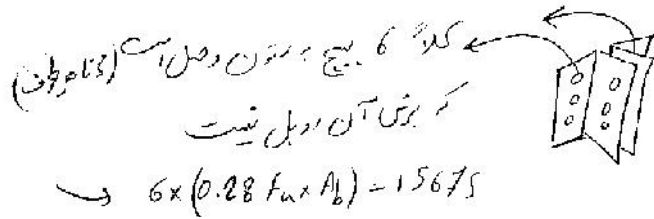 کلاً 6 پیچ به ستون وصل است (3 تا هر طرف)
که برش آن دوبل نیست
→ 6×(0.28 Fu × Ab) = 15675